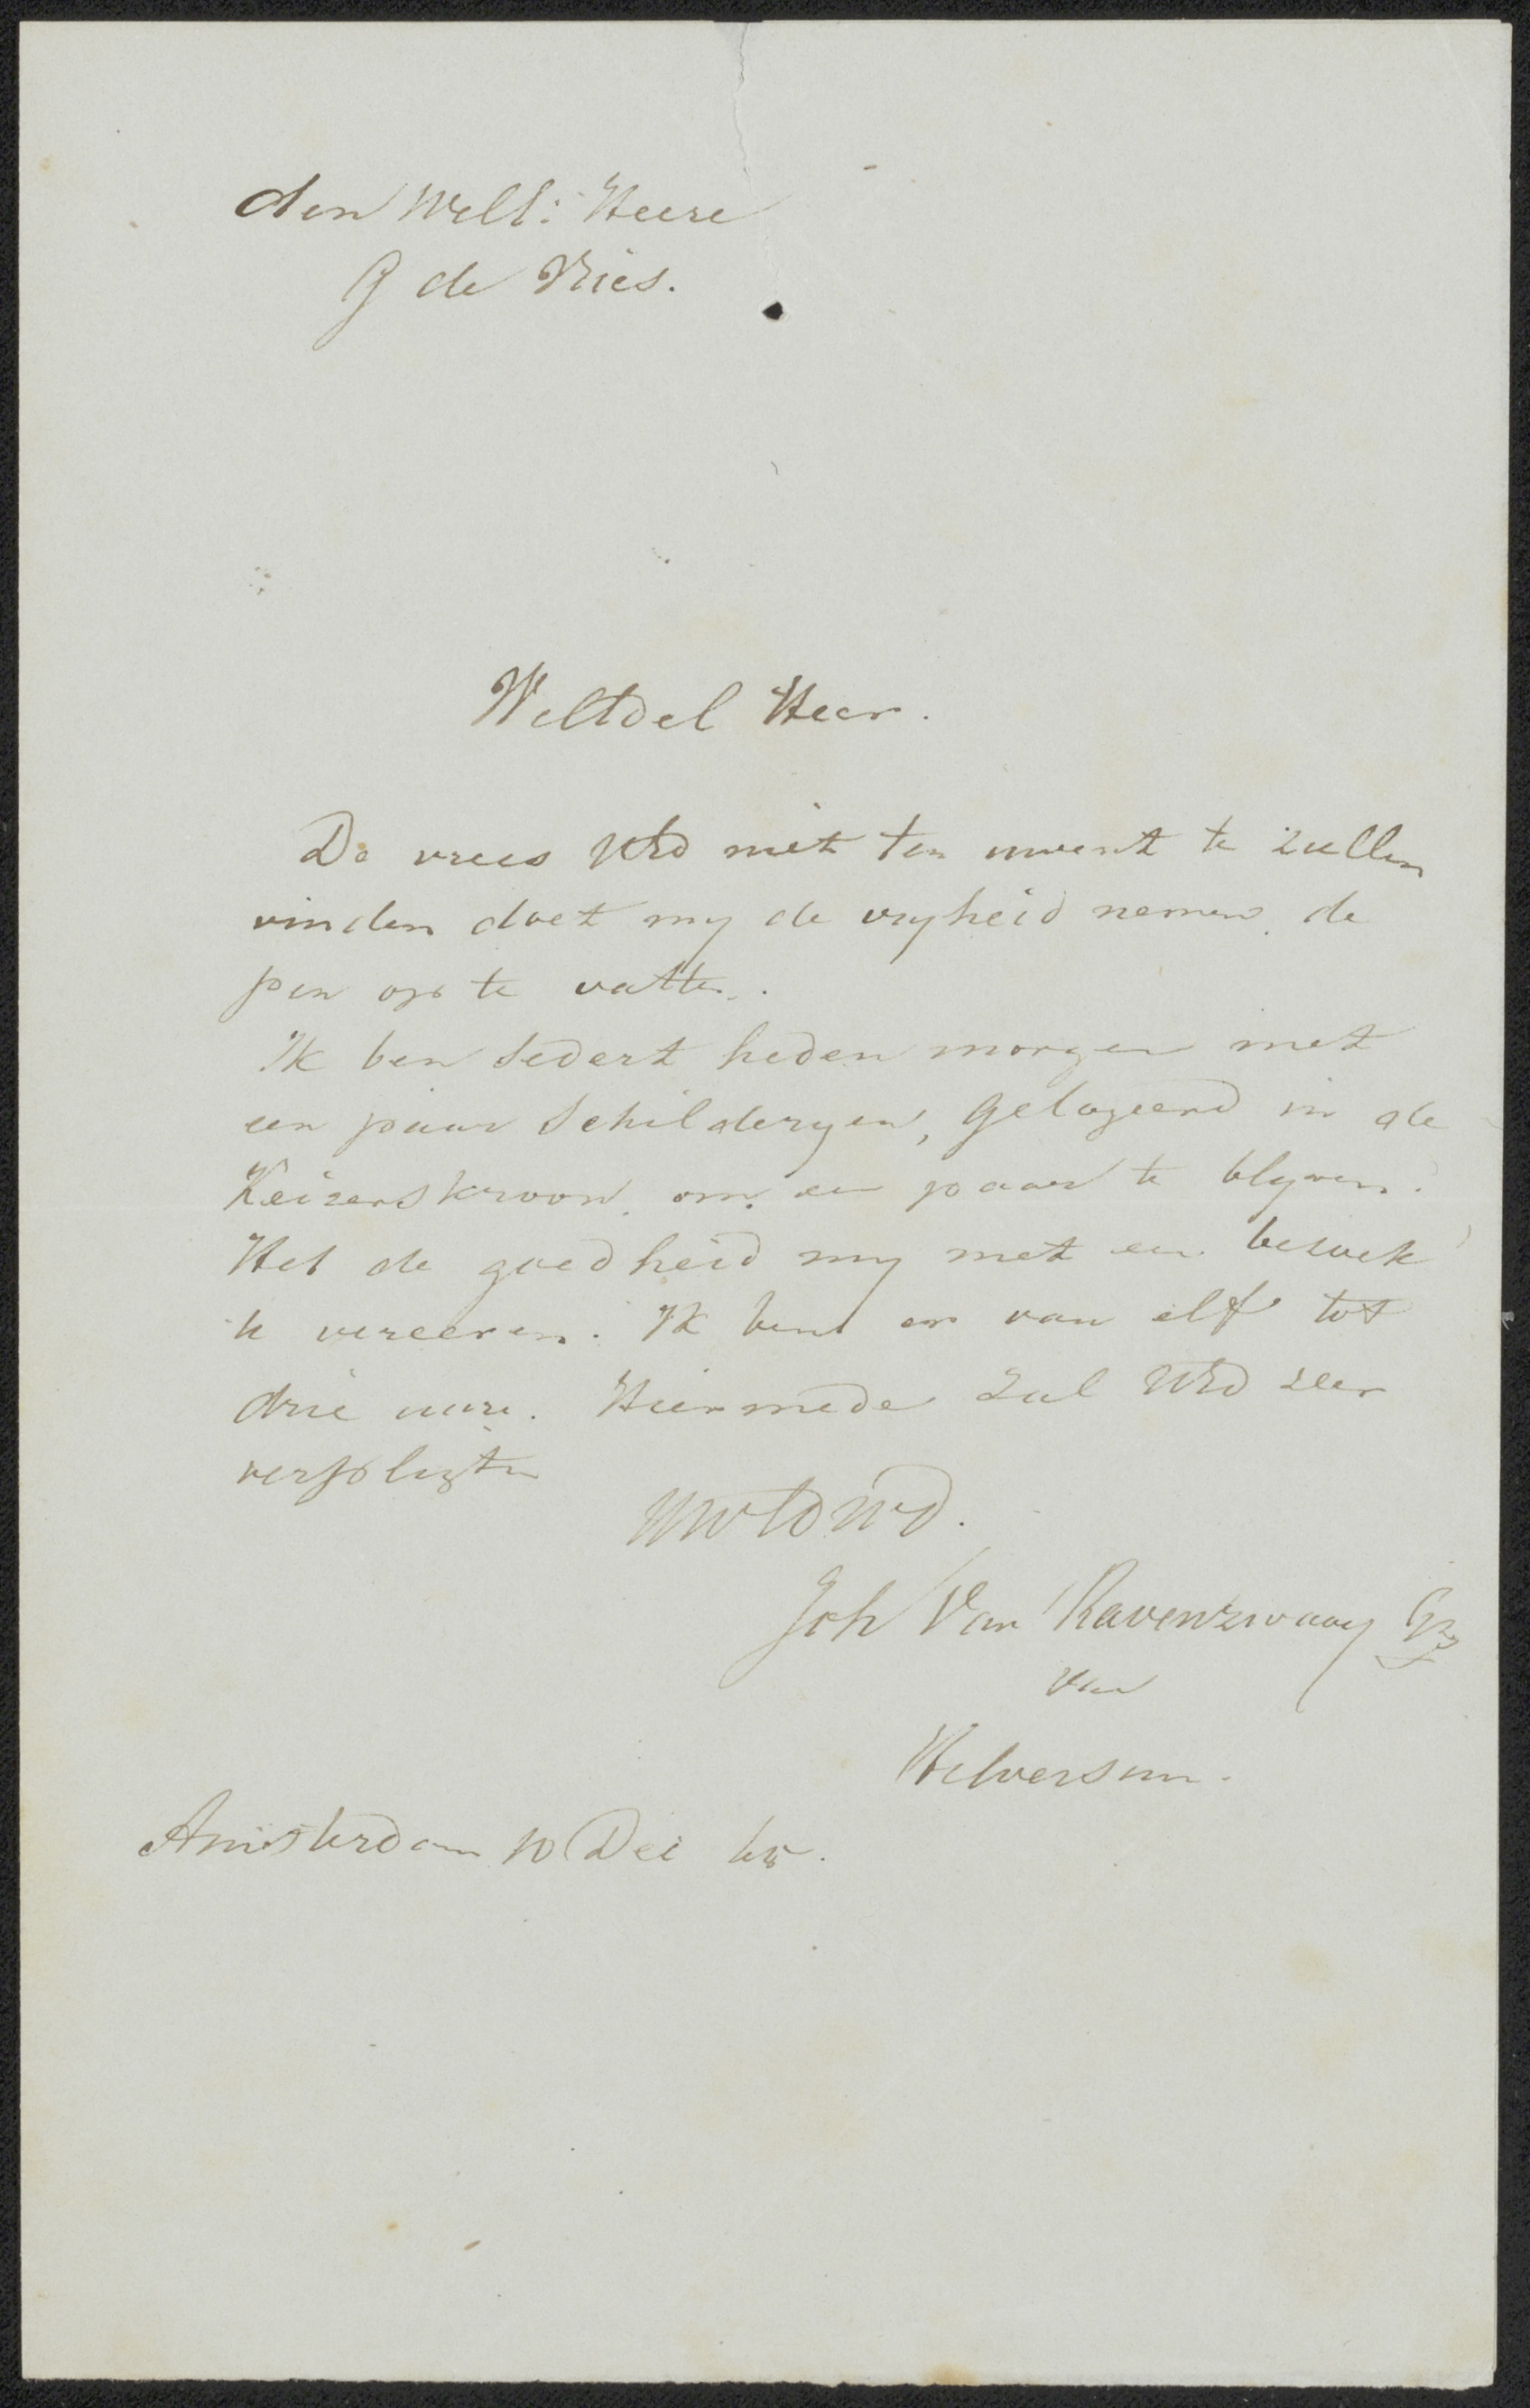 den WelE: Heere
G de Vries.
WelEdel Heer.
De vrees UEd niet ten uwent te zullen
vinden doet my de vryheid nemen de
pen op te vatten.
Ik ben sedert heden morgen met
een paar Schilderyen, gelogeerd in de
Keizerskroon om een paar te blyven.
Heb de goedheid my met een bezoek
te vereeren. Ik ben er van elf tot
drie uure. Hiermede zal UEd zeer
verpligten
UWEDWD.
Joh Van Ravenzwaay Gz
van
Hilversum.
Amsterdam 10 Dec